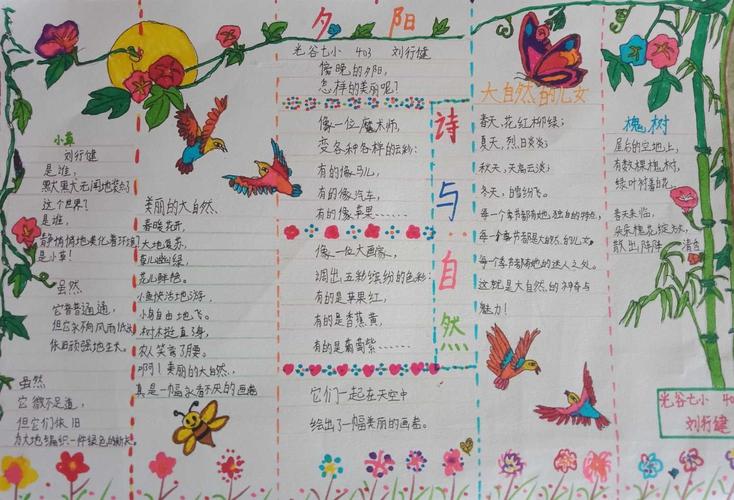 小草
刘行健
是谁,
默默无闻地装点了
这个世界?
是谁,
静悄悄地美化着环境
是小草!
虽然
它普普通通,
但它永向风雨低头
依旧顽强地生长。
虽然
它微不足道,
但它们依旧
为大地编织一件绿色的新衣。
美丽的大自然
春暖花开,
大地复苏。
春儿幽绿,
花儿鲜艳。
小鱼快活地游,
小鸟自由地飞。
树木挺直了身,
农人笑弯了腰。
啊!美丽的大自然,
真是一幅永看不厌的画卷
夕阳
光谷七小 403 刘行健
傍晚的夕阳,
怎样的美丽呢?
像一位魔术师,
变各种各样的云彩:
有的像马儿,
有的像汽车,
有的像苹果……
像一位大画家,
调出五彩缤纷的色彩:
有的是苹果红,
有的是香蕉黄,
有的是葡萄紫……
它们一起在天空中
绘出了一幅美丽的画卷。
诗与自然
大自然的儿女
春天,花红柳绿;
夏天,烈日炎炎;
秋天,天高云淡;
冬天,白雪纷飞。
每一个季节都有她独自的特点,
每一个季节都是大自然的儿女。
每个季节都有她的迷人之处。
这就是大自然的神奇与
魅力!
槐树
屋后的空地上,
有数棵槐树,
绿叶衬着花。
春天来临,
朵朵槐花绽放,
散出阵阵清香
光谷七小 403
刘行健